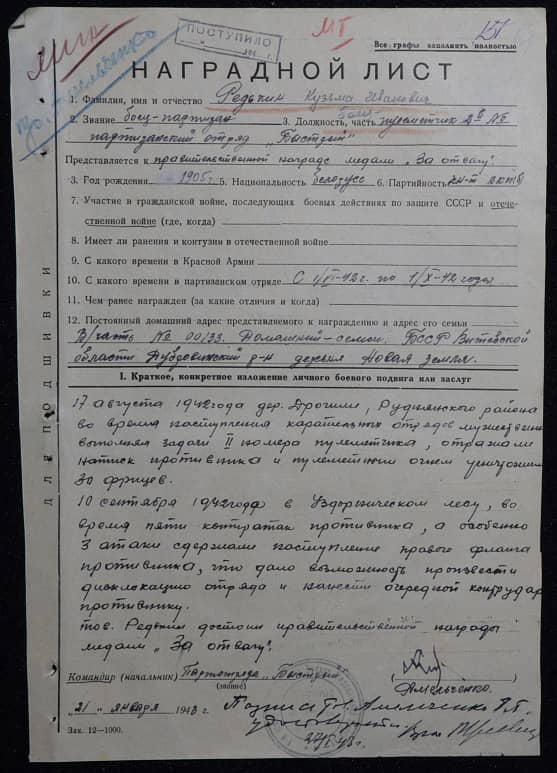 ПОСТУПИЛО
МП
151
Все графы заполнять полностью
НАГРАДНОЙ ЛИСТ
1. Фамилия, имя и отчество Редькин Кузьма Иванович
2. Звание боец-партизан 3. Должность, часть пулеметчик
партизанский отряд „Быстрый"
Представляется к правительственной награде медали „За отвагу".
3. Год рождения 1905г. 5. Национальность белорусс 6. Партийность
7. Участие в гражданской войне, последующих боевых действиях по защите СССР и отече-
ственной войне (где, когда)
8. Имеет ли ранения и контузии в отечественной войне
9. С какого времени в Красной Армии
10. С какого времени в партизанском отряде С 1/VI-42г. по 1/X-42 года
11. Чем ранее награжден (за какие отличия и когда)
12. Постоянный домашний адрес представляемого к награждению и адрес его семьи
В/часть № 00133. Домашний-семьи. БССР Витебской
области р-н деревня Новая Земля.
I. Краткое, конкретное изложение личного боевого подвига или заслуг
17 августа 1942года дер. Дрогили, Руднянского района
во время наступления карательных отрядов мужественно
выполняя задачи II номера пулеметчика, отражали
натиск противника и пулеметным огнем уничтожили
30 фрицев.
10 сентября 1942года в лесу, во
время пяти контратак противника, а особенно
3 атаки сдержали наступление правого фланга
противника, что дало возможность произвести
дислокацию отряда и нанести очередной контрудар
противнику.
тов. Редькин достоин правительственной награды
медали „За отвагу".
Командир (начальник) Партотряда „Быстрый"
(звание)
Амельченко.
„21" января 1943 г.
удостоверяю
27/I 43 г.
Зак. 12—1000.
ДЛЯ ПОДШИВКИ